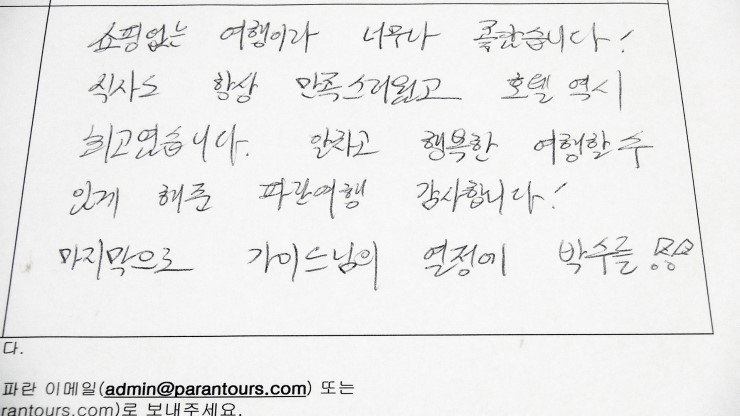 쇼핑없는 여행이라 너무나 좋았습니다!
식사도 항상 만족스러웠고 호텔 역시
최고였습니다. 알차고 행복한 여행할 수
있게 해준 파란여행 감사합니다!
마지막으로 가이드님의 열정에 박수를
다.
파란 이메일(admin@parantours.com) 또는
rantours.com)로 보내주세요.